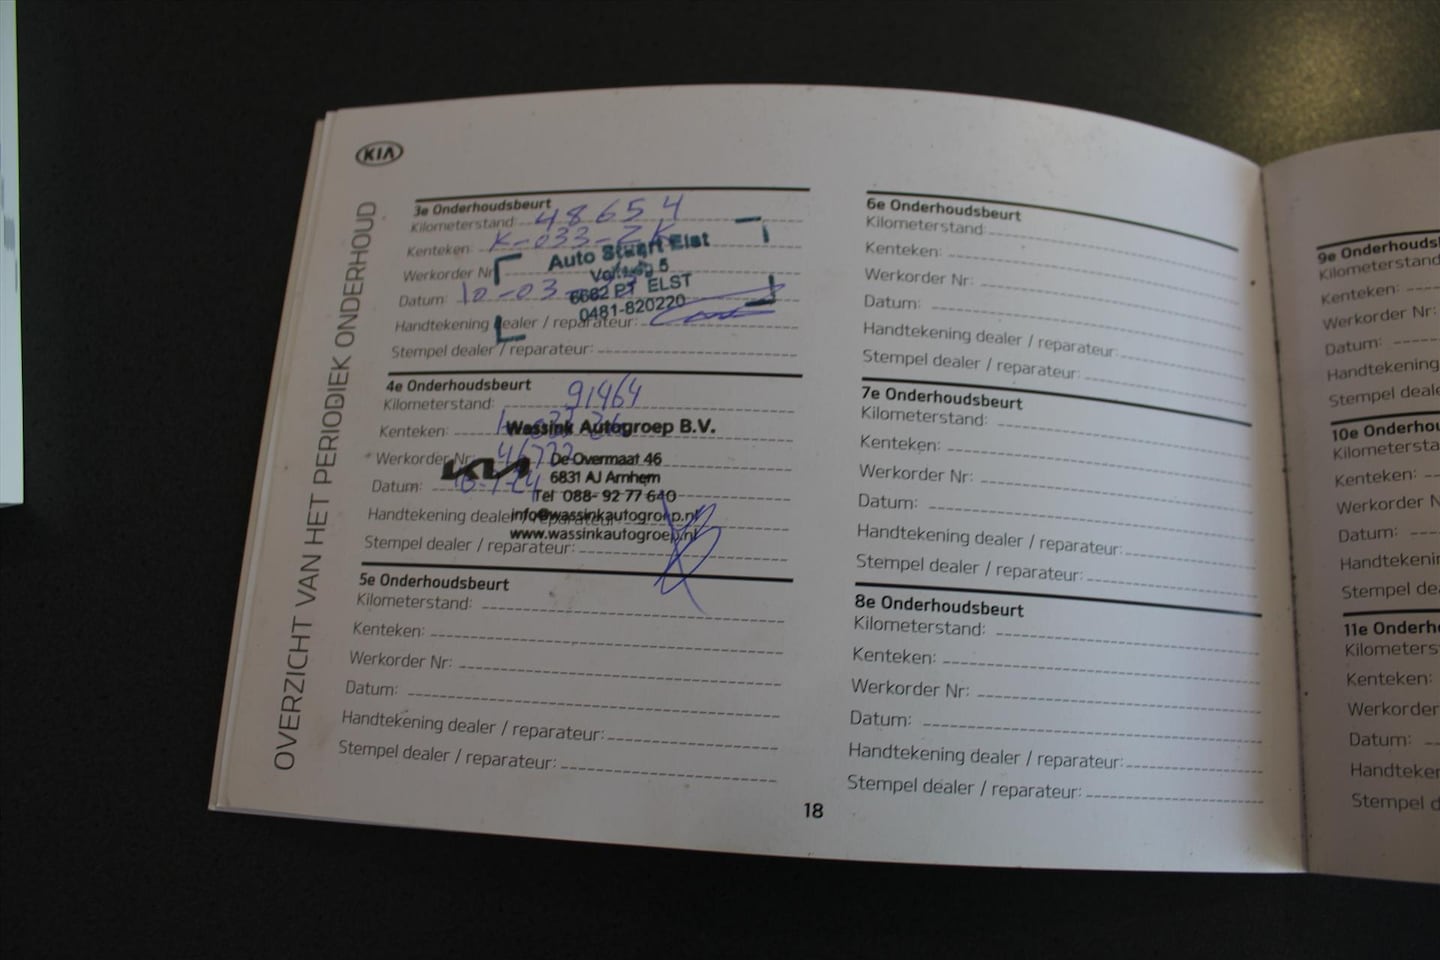 KIA
OVERZICHT VAN HET PERIODIEK ONDERHOUD
3e Onderhoudsbeurt
Kilometerstand: 48654
Kenteken: K-033-ZK
Werkorder Nr
Datum: 10-03
Handtekening dealer / reparateur:
Stempel dealer / reparateur:
Auto Stuart Elst
5
6662 PT ELST
0481-820220
4e Onderhoudsbeurt
Kilometerstand: 91464
Kenteken:
Werkorder Nr:
Datum:
Handtekening dealer / reparateur:
Stempel dealer / reparateur:
KIA
Wassink Autogroep B.V.
De Overmaat 46
6831 AJ Arnhem
Tel 088- 92 77 640
info@wassinkautogroep.nl
www.wassinkautogroep.nl
5e Onderhoudsbeurt
Kilometerstand:
Kenteken:
Werkorder Nr:
Datum:
Handtekening dealer / reparateur:
Stempel dealer / reparateur:
6e Onderhoudsbeurt
Kilometerstand:
Kenteken:
Werkorder Nr:
Datum:
Handtekening dealer / reparateur:
Stempel dealer / reparateur:
7e Onderhoudsbeurt
Kilometerstand:
Kenteken:
Werkorder Nr:
Datum:
Handtekening dealer / reparateur:
Stempel dealer / reparateur:
8e Onderhoudsbeurt
Kilometerstand:
Kenteken:
Werkorder Nr:
Datum:
Handtekening dealer / reparateur:
Stempel dealer / reparateur:
18
9e Onderhouds
Kilometerstand
Kenteken:
Werkorder Nr:
Datum:
Handtekening
Stempel deale
10e Onderhou
Kilometersta
Kenteken:
Werkorder N
Datum:
Handtekenin
Stempel dea
11e Onderh
Kilometers
Kenteken:
Werkorder
Datum:
Handteken
Stempel d